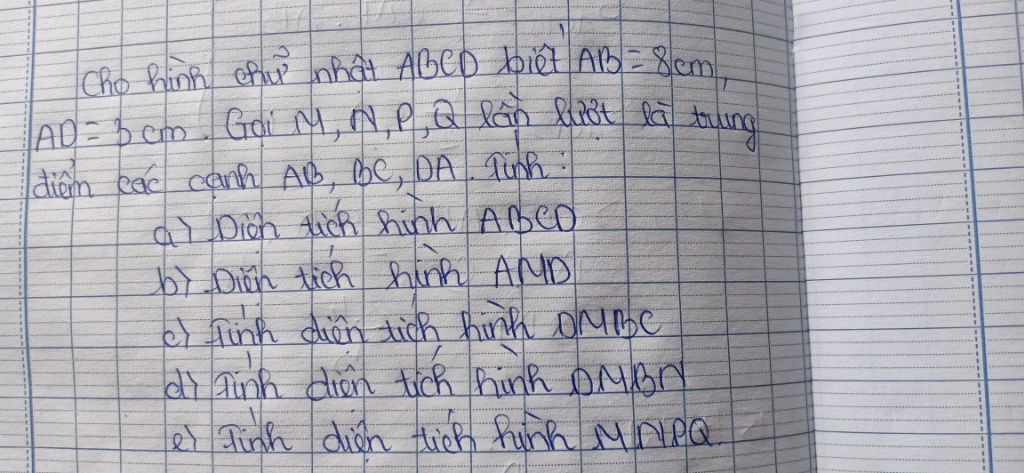 Cho hình chữ nhật ABCD biết AB = 8cm,
AD = 3 cm. Gọi M, N, P, Q lần lượt là trung
điểm các cạnh AB, BC, DA. Tính:
a) Diện tích hình ABCD
b) Diện tích hình AMD
c) Tính diện tích hình DMBC
d) Tính diện tích hình DMBN
e) Tính diện tích hình MNPQ.